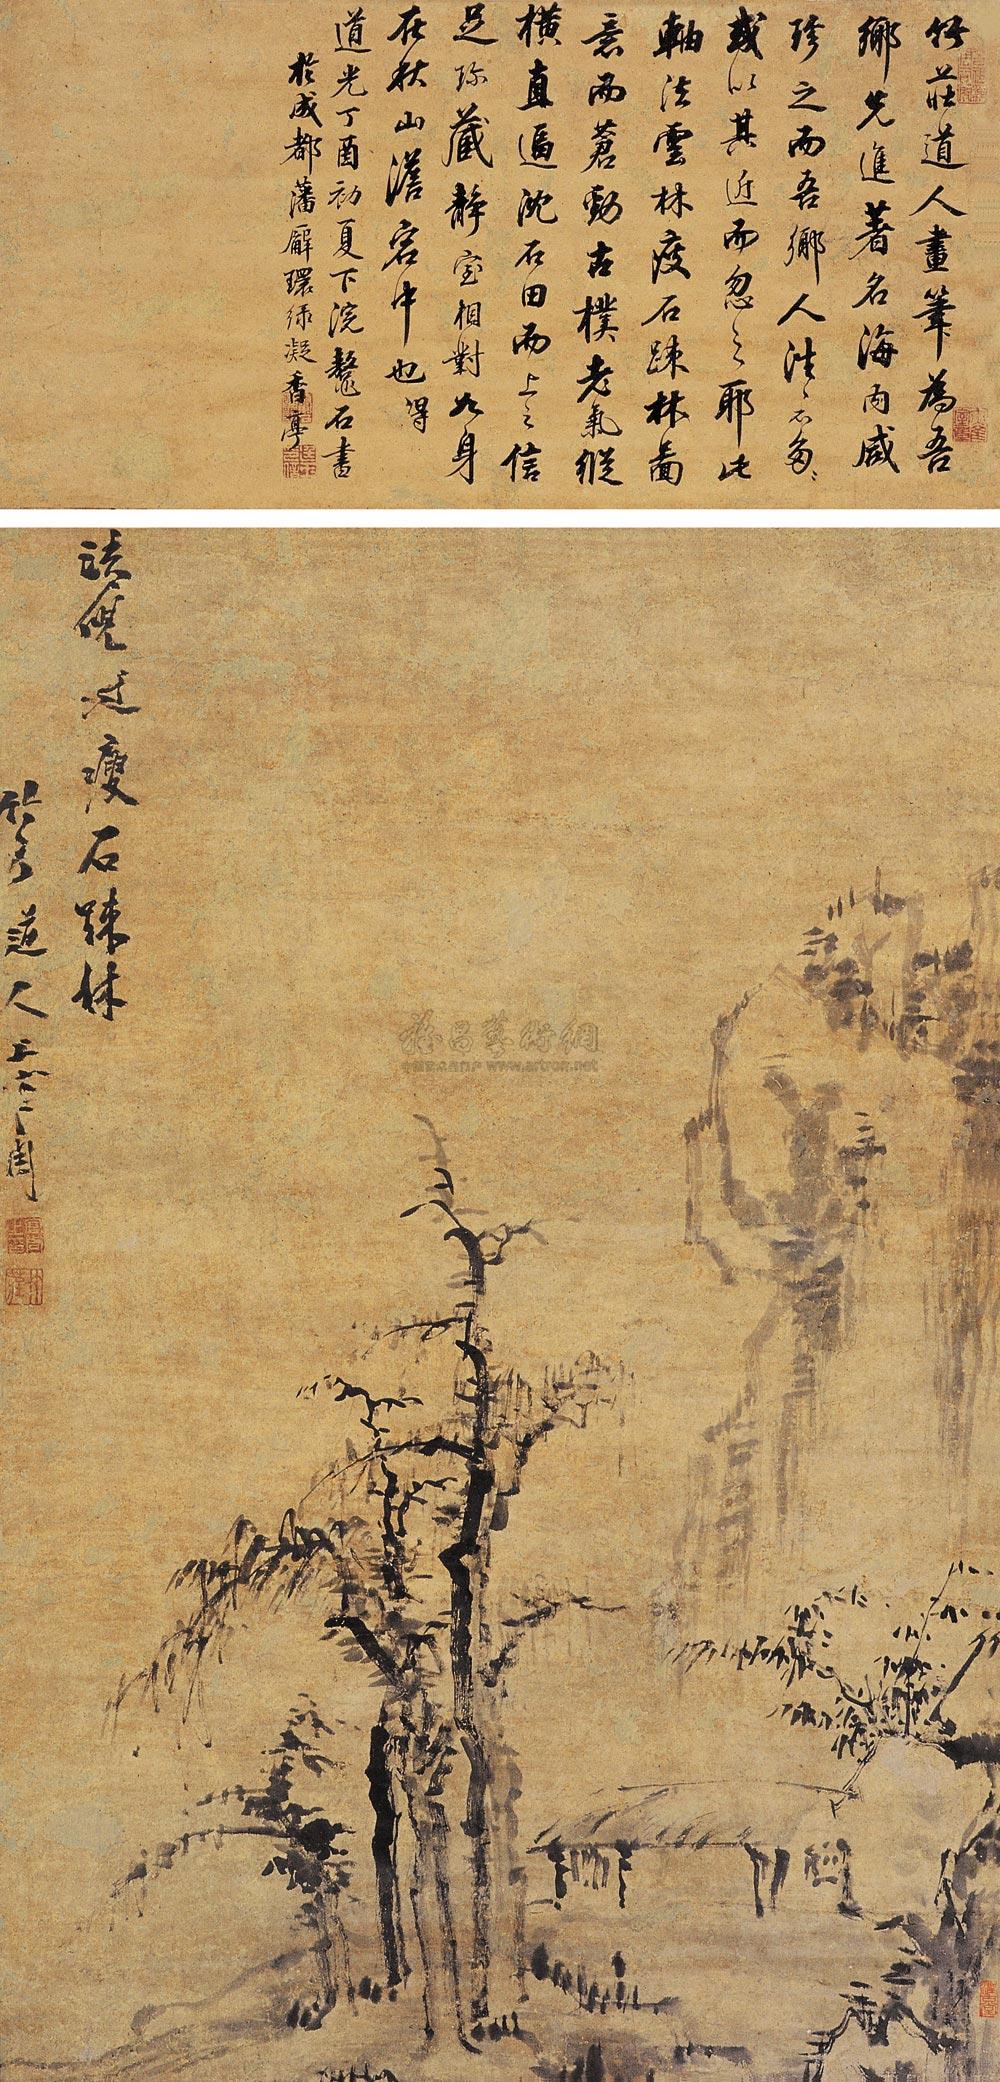 竹莊道人畫筆為吾
鄉先進著名海內咸
珍之而吾鄉人往〻不
或以其近而忽之耶此
軸法雲林瘦石疎林啚
意而蒼勁古樸老氣縱
橫直逼沈石田而上之信
足珎藏靜室相對如身
在秋山澹宕中也得
道光丁酉初夏下浣鼇石書
於成都藩廨環綠凝香亭
法倪迂瘦石疎林
竹莊道人
雅昌藝術網
www.artron.net